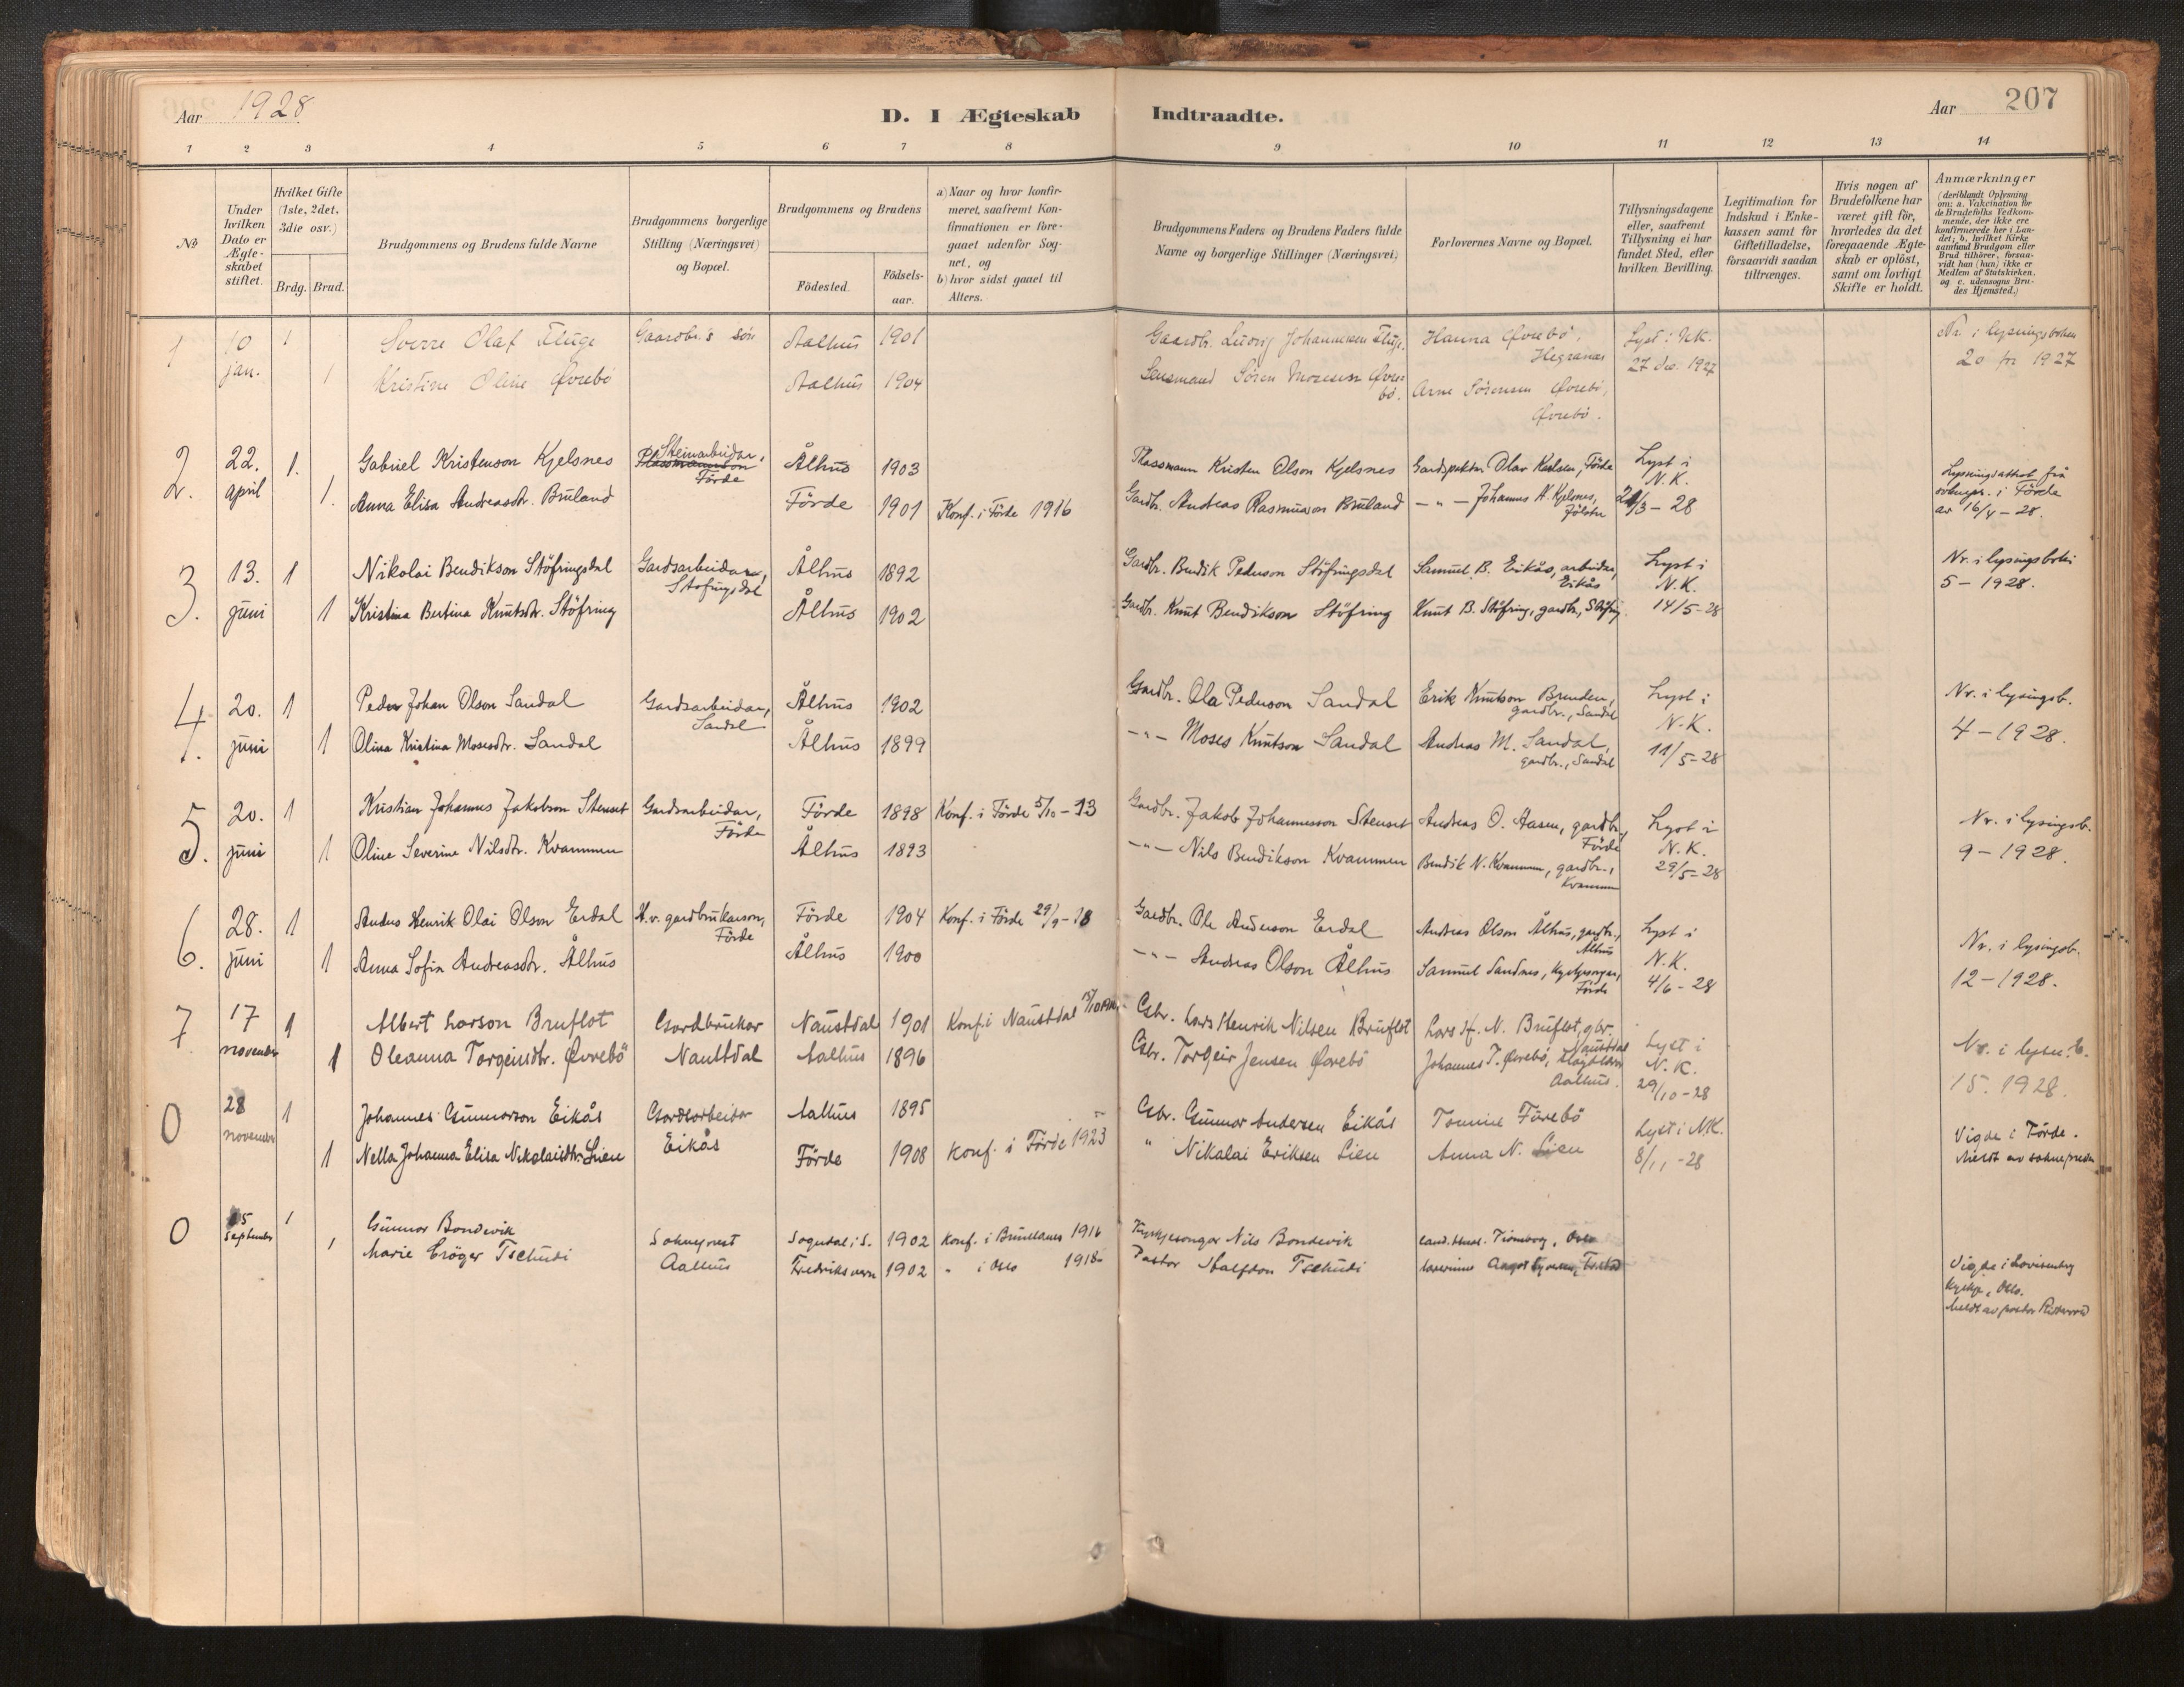 Aar 1928
D. I Ægteskab Indtraadte.
Aar
207
1 2 3 4 5 6 7 8 9 10 11 12 13 14
No
Under hvilken Dato er Ægte-skabet stiftet.
Hvilket Gifte (1ste, 2det, 3die osv.)
Brdg. Brud.
Brudgommens og Brudens fulde Navne
Brudgommens borgerlige Stilling (Næringsvei) og Bopæl.
Brudgommens og Brudens
Födested.
Födsels-aar.
a) Naar og hvor konfir-meret, saafremt Kon-firmationen er fore-gaaet udenfor Sog-net, og
b) hvor sidst gaaet til Alters.
Brudgommens Faders og Brudens Faders fulde Navne og borgerlige Stillinger (Næringsvei)
Forlovernes Navne og Bopæl.
Tillysningsdagene eller, saafremt Tillysning ei har fundet Sted, efter hvilken Bevilling.
Legitimation for Indskud i Enke-kassen samt for Giftetilladelse, forsaavidt saadan tiltrænges.
Hvis nogen af Brudefolkene har været gift för, hvorledes da det foregaaende Ægte-skab er oplöst, samt om lovligt Skifte er holdt.
Anmærkninger
(deriblandt Oplysning om: a. Vakcination for de Brudefolks Vedkom-mende, der ikke ere konfirmerede her i Lan-det; b. hvilket Kirke samfund Brudgom eller Brud tilhörer, forsaa-vidt han (hun) ikke er Medlem af Statskirken, og c. udensogns Bru-des Hjemsted.)
1 10 jan. 1 Sverre Olaf Fluge Gaardbr.s sön Aalhus 1901 Gaardbr. Ludvig Johannessen Fluge. Hanna Øvrebö, Hegranes Lyst i NK. 27 des. 1927 Nr. i lysningsboken 20 for 1927
1 Kristine Oline Øvrebö Aalhus 1904 Lensmand Sören Mosessen Øvrebö. Arne Sörensen Øvrebö, Øvrebö.
2. 22. april 1. Gabriel Kristenson Kjelsnes Plassmannson Steinarbeidar, Förde Ålhus 1903 Plassmann Kristen Olson Kjelsnes Olav Karlsen, Förde Lyst i N.K. 21/3-28 Lysningsattest frå i Förde av 16/4-28.
1. Anna Elisa Andreasdtr. Bruland Förde 1901 Konf. i Förde 1916 Gardbr. Andreas Rasmusson Bruland -"- Johannes K. Kjelsnes, Jölster
3. 13. juni 1 Nikolai Bendikson Stöfringsdal Gardsarbeidar, Stöfringsdal Ålhus 1892 Gardbr. Bendik Pederson Stöfringsdal Samuel B. Eikås, arbeidar, Eikås Lyst i N.K. 14/5-28 Nr. i lysingsboki 5-1928.
1 Kristina Bertina Knutsdtr. Stöfring Ålhus 1902 Gardbr. Knut Bendikson Stöfring Knut B. Stöfring, gardbr., Stöfring
4. 20. juni 1 Peder Johan Olson Sandal Gardsarbeidar, Sandal Ålhus 1902 Gardbr. Ola Pederson Sandal Erik Knutson Brenden, gardbr., Sandal Lyst i N.K. 11/5-28 Nr. i lysingsb. 4-1928.
1 Olina Kristina Mosesdtr. Sandal Ålhus 1899 -"- Moses Knutson Sandal Andreas M. Sandal, gardbr., Sandal
5. 20. juni 1 Kristian Johannes Jakobson Stenset Gardsarbeidar, Förde Förde 1898 Konf. i Förde 5/10-13 Gardbr. Jakob Johannesson Stenset Andreas O. Aasen, gardbr., Förde Lyst i N.K. 29/5-28 Nr. i lysingsb. 9-1928.
1 Oline Severine Nilsdtr. Kvammen Ålhus 1893 -"- Nils Bendikson Kvammen Bendik N. Kvammen, gardbr., Kvammen
6. 28. juni 1 Anders Henrik Olai Olson Erdal H.v. gardbrukarson, Förde Förde 1904 Konf. i Förde 29/9-18 Gardbr. Ole Anderson Erdal Andreas Olson Ålhus, gardbr., Ålhus Lyst i N.K. 4/6-28 Nr. i lysingsb. 12-1928.
1 Anna Sofia Andreasdtr. Ålhus Ålhus 1900 -"- Andreas Olson Ålhus Samuel Sandnes, kyrkjesongar, Förde
7 17 november 1 Albert Larson Bruflot Gardbrukar Naustdal 1901 Konf. i Naustdal Gbr. Lars Henrik Nilsen Bruflot Lars H. N. Bruflot, gbr. Naustdal Lyst i N.K. 29/10-28 Nr. i lysn.b. 15. 1928.
1 Oleanna Torgeirsdtr. Øvrebö Naustdal Aalhus 1896 Gbr. Torgeir Jensen Øvrebö Johannes T. Øvrebö, Aalhus.
0 28 november 1 Johannes Gunnarson Eikås Gardsarbeidar Aalhus 1895 Gbr. Gunnar Andersen Eikås Tomine Furebö Lyst i N.K. 8/11-28 Vigde i Förde. Meldt av soknepresten
1 Nella Johanna Elisa Nikolaisdtr. Lien Eikås Förde 1908 Konf. i Förde 1923 " Nikolai Eriksen Lien Anna N. Lien
0 15 September 1 Gunnar Bondevik Sokneprest Sogndal i S. 1902 Konf. i Brunlanes 1916 Kyrkjesongar Nils Bondevik Oslo Vigde i Lovisenberg Kyrkje, Oslo. Meldt av pastor
1 Marie Cröger Tschudi Aalhus Fredriksvern 1902 " i Oslo 1918 Pastor Halfdan Tschudi